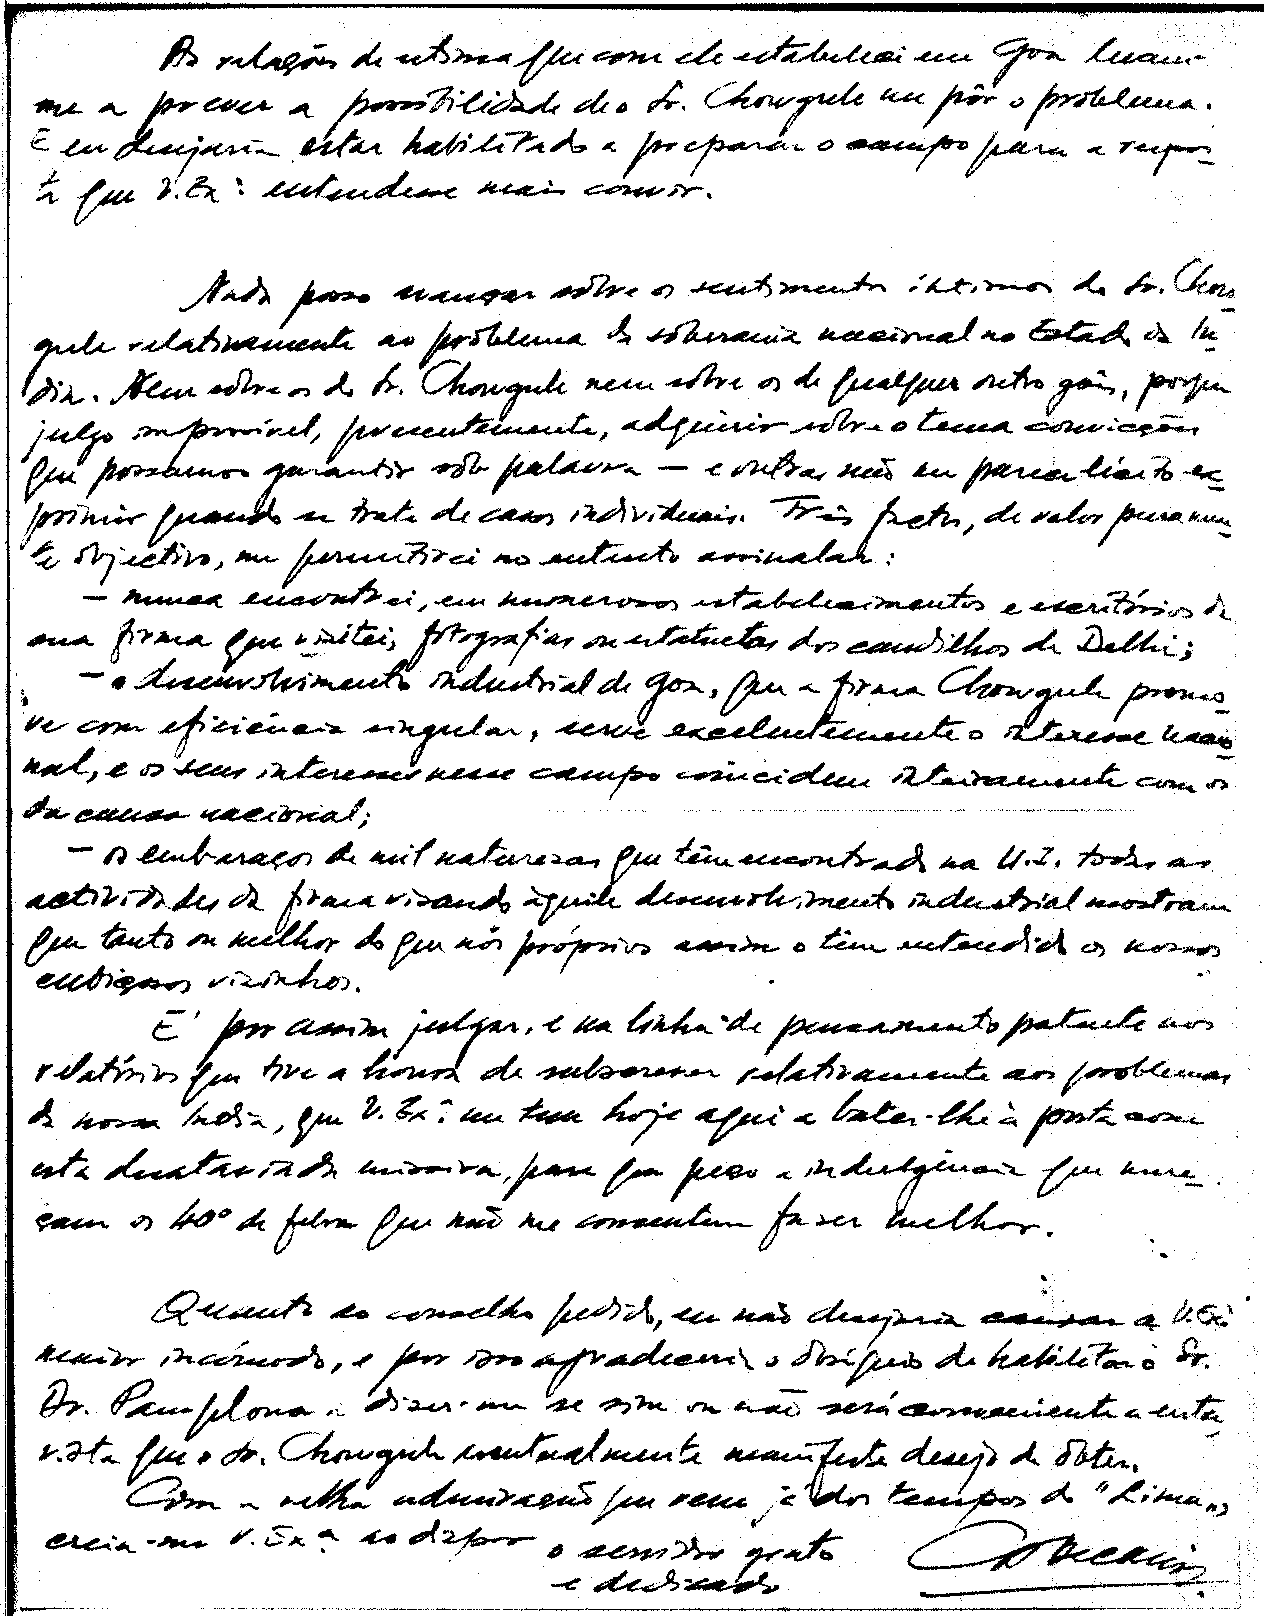 As relações de estima que com ele estabeleci em Goa levam-
me a prever a possibilidade de o Sr. Chowgule me pôr o problema.
E eu desejaria estar habilitado a preparar o campo para a respos-
ta que V. Exª. entendesse mais convir.
Nada posso avançar sôbre os sentimentos íntimos do Sr. Chow-
gule relativamente ao problema da soberania nacional no Estado da Ín-
dia. Nem sôbre os do Sr. Chowgule nem sôbre os de qualquer outro goês, porque
julgo impossível, presentemente, adquirir sôbre o tema convicções
que possamos garantir sob palavra — e outras não me parece lícito ex-
primir quando se trata de casos individuais. Três factos, de valor puramen-
te objectivo, me permitirei no entanto assinalar:
— nunca encontrei, em numerosos estabelecimentos e escritórios da
sua firma que visitei, fotografias ou estatuetas dos caudilhos de Delhi;
— o desenvolvimento industrial de Goa, que a firma Chowgule promo-
ve com eficiência singular, serve excelentemente o interesse nacio-
nal, e os seus interesses nesse campo coincidem inteiramente com os
da causa nacional;
— os embaraços de mil naturezas que têm encontrado na U.I. todas as
actividades da firma visando àquele desenvolvimento industrial mostram
que tanto ou melhor do que nós próprios assim o têm entendido os nossos
cubiçosos vizinhos.
É por assim julgar, e na linha de pensamento patente nos
relatórios que tive a honra de subscrever relativamente aos problemas
da nossa Índia, que V. Exª. me tem hoje aqui a bater-lhe à porta com
esta desataviada missiva, para que peço a indulgência que mere-
çam os 40º de febre que não me consentem fazer melhor.
Quanto ao conselho pedido, eu não desejaria causar a V. Exª
maior incómodo, e por isso agradeceria o obséquio de habilitar o Sr.
Dr. Pamplona a dizer-me se sim ou não será conveniente a entre-
vista que o Sr. Chowgule eventualmente manifeste desejo de obter.
Com a velha admiração que vem já dos tempos do "Lima",
creia-me V. Exª ao dispor
o servidor grato
e dedicado